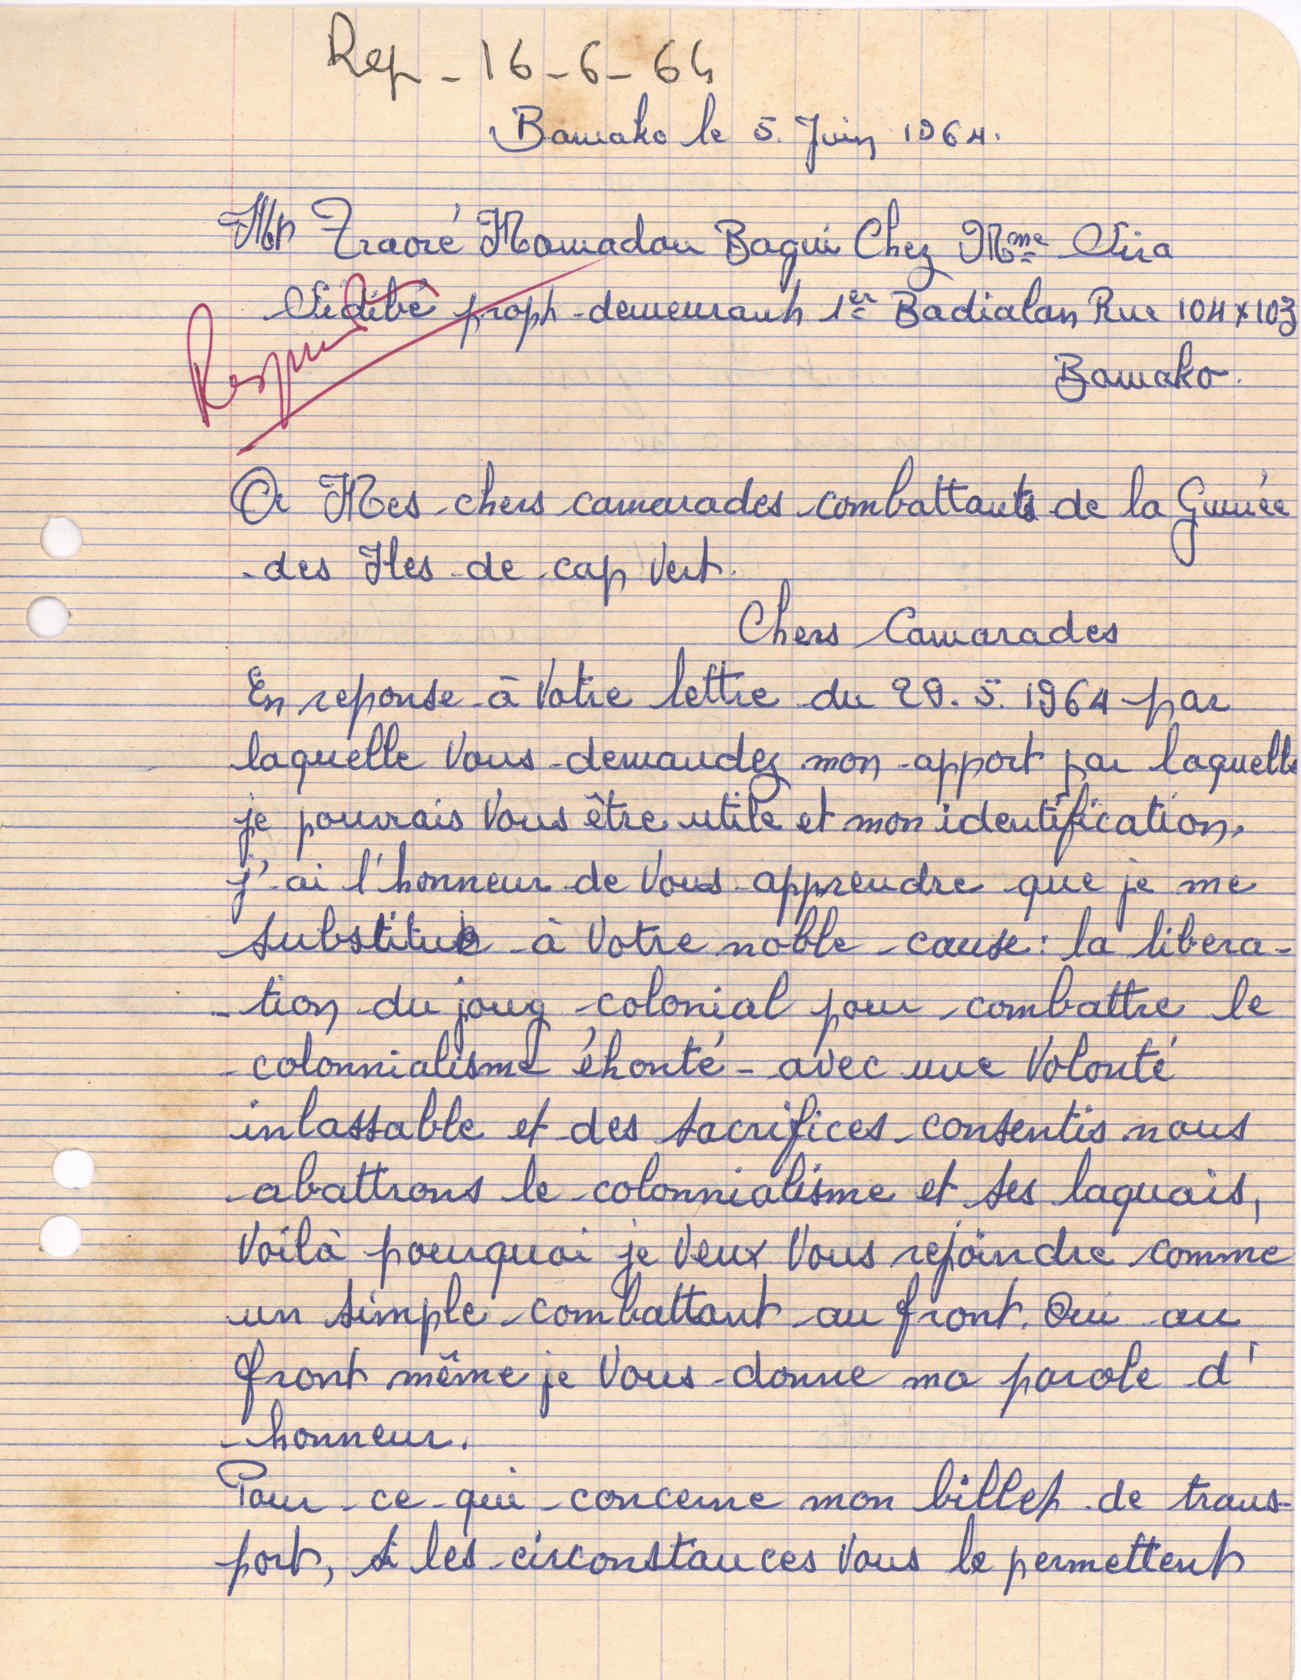 Rep - 16-6-64
Bamako le 5. Juin 1964.
Mr Traoré Mamadou Bagui Chez Mme Sira
Sidibé proph-demeurant 1er Badialan Rue 104 x 103
Bamako.
A Mes chers camarades combattants de la Guinée
des Iles de cap Vert.
Chers Camarades
En reponse à Votre lettre du 29. 5. 1964 par
laquelle Vous demandez mon apport par laquelle
je pourrais Vous être utile et mon identification,
j'ai l'honneur de Vous apprendre que je me
substitue à Votre noble cause: la libera-
tion du joug colonial pour combattre le
colonnialisme éhonté - avec une Volonté
inlassable et des sacrifices consentis nous
abattrons le colonnialisme et ses laquais,
Voilà pourquoi je Veux Vous rejoindre comme
un simple combattant au front. Oui au
front même je Vous donne ma parole d'
honneur.
Pour ce qui concerne mon billet de trans-
port, si les circonstances Vous le permettent